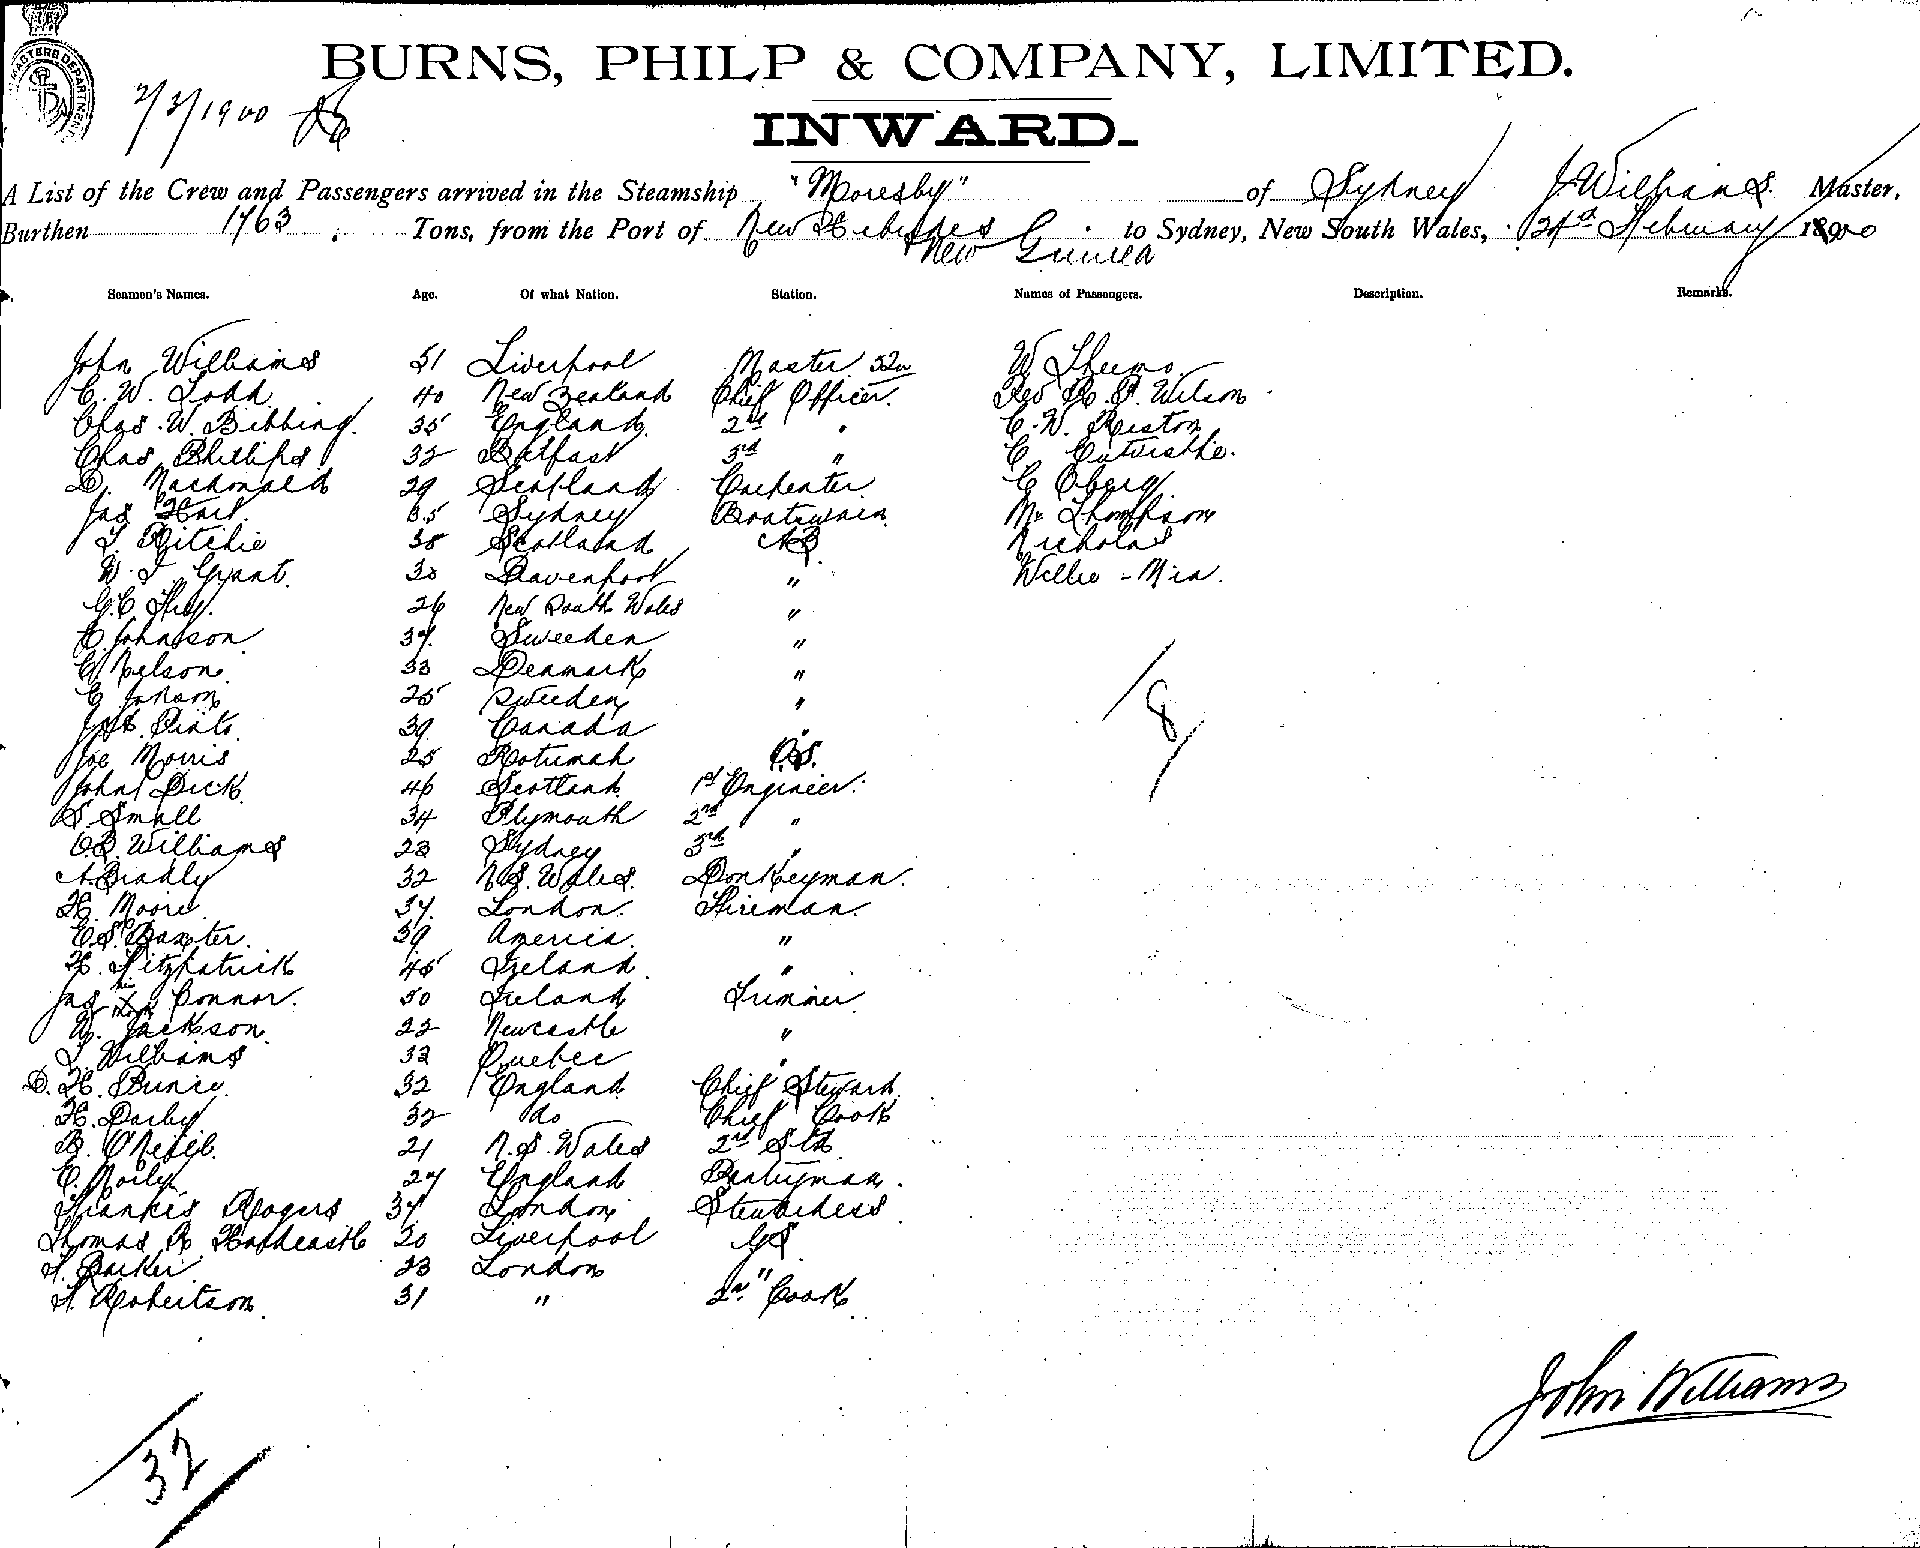 BURNS, PHILP & COMPANY, LIMITED.
2/3/1900
INWARD.
A List of the Crew and Passengers arrived in the Steamship "Moresby" of Sydney J. Williams. Master,
Burthen 1763 Tons, from the Port of New Hebrides to Sydney, New South Wales, February 1900
New Guinea
Seamen's Names. Age. Of what Nation. Station. Names of Passengers. Description. Remarks.
John Williams 51 Liverpool Master W
C. W. Todd 40 New Zealand Chief Officer. Rev Wilson
Chas. W. Bibbing. 35 England 2nd " C. W.
Chas Phillips 32 Belfast 3rd " C
D. Macdonald 29 Scotland Carpenter G Oberg
Jas Hart 35 Sydney Boatswain Mr Thompson
T Ritchie 38 Scotland AB Nicholas
W. T Grant. 30 Davenport " Willie - Mia.
G.C. 26 New South Wales "
C. Johnson 37. Sweeden "
C Nelson. 33 Denmark "
C Johson 25 Sweeden "
39 Canada "
Joe Morris 25 Rotumah O.S.
John Dick 46 Scotland 1st Engineer.
S. Small 34 Plymouth 2nd "
O.B. Williams 23 Sydney 3rd "
A. Bradly 32 N.S. Wales. Donkeyman.
H. Moore 37. London. Fireman.
E.S. Baxter. 39 America. "
H. Fitzpatrick 45 Ireland. "
Jas his x mark Connor. 50 Ireland Trimmer
Jackson. 22 Newcastle "
T Williams 32 Quebec "
D. H. Bunce. 32 England Chief Steward.
H. Darby 32 do Chief Cook
B. O'Neill. 21 N.S. Wales 2nd Std
C. 27 England Pantryman.
Rogers 37 London Stewardess
Thomas R Hardcastle 20 Liverpool GS
Parker 23 London "
Robertson. 31 " 2nd Cook
8
32
John Williams